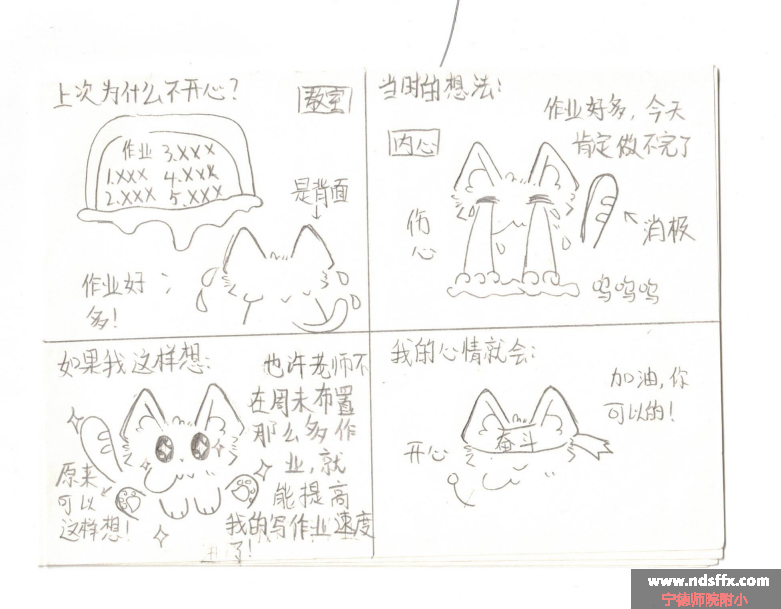 上次为什么不开心?
教室
作业 3.XXX
1.XXX 4.XXX
2.XXX 5.XXX
是背面
作业好
多!
当时的想法:
内心
作业好多,今天
肯定做不完了
伤
心
消极
呜呜呜
如果我这样想:
也许老师不
在周末布置
那么多作
业,就
能提高
我的写作业速度
了!
原来
可以
这样想!
我的心情就会:
加油,你
可以的!
奋斗
开心
www.ndsffx.com
宁德师院附小